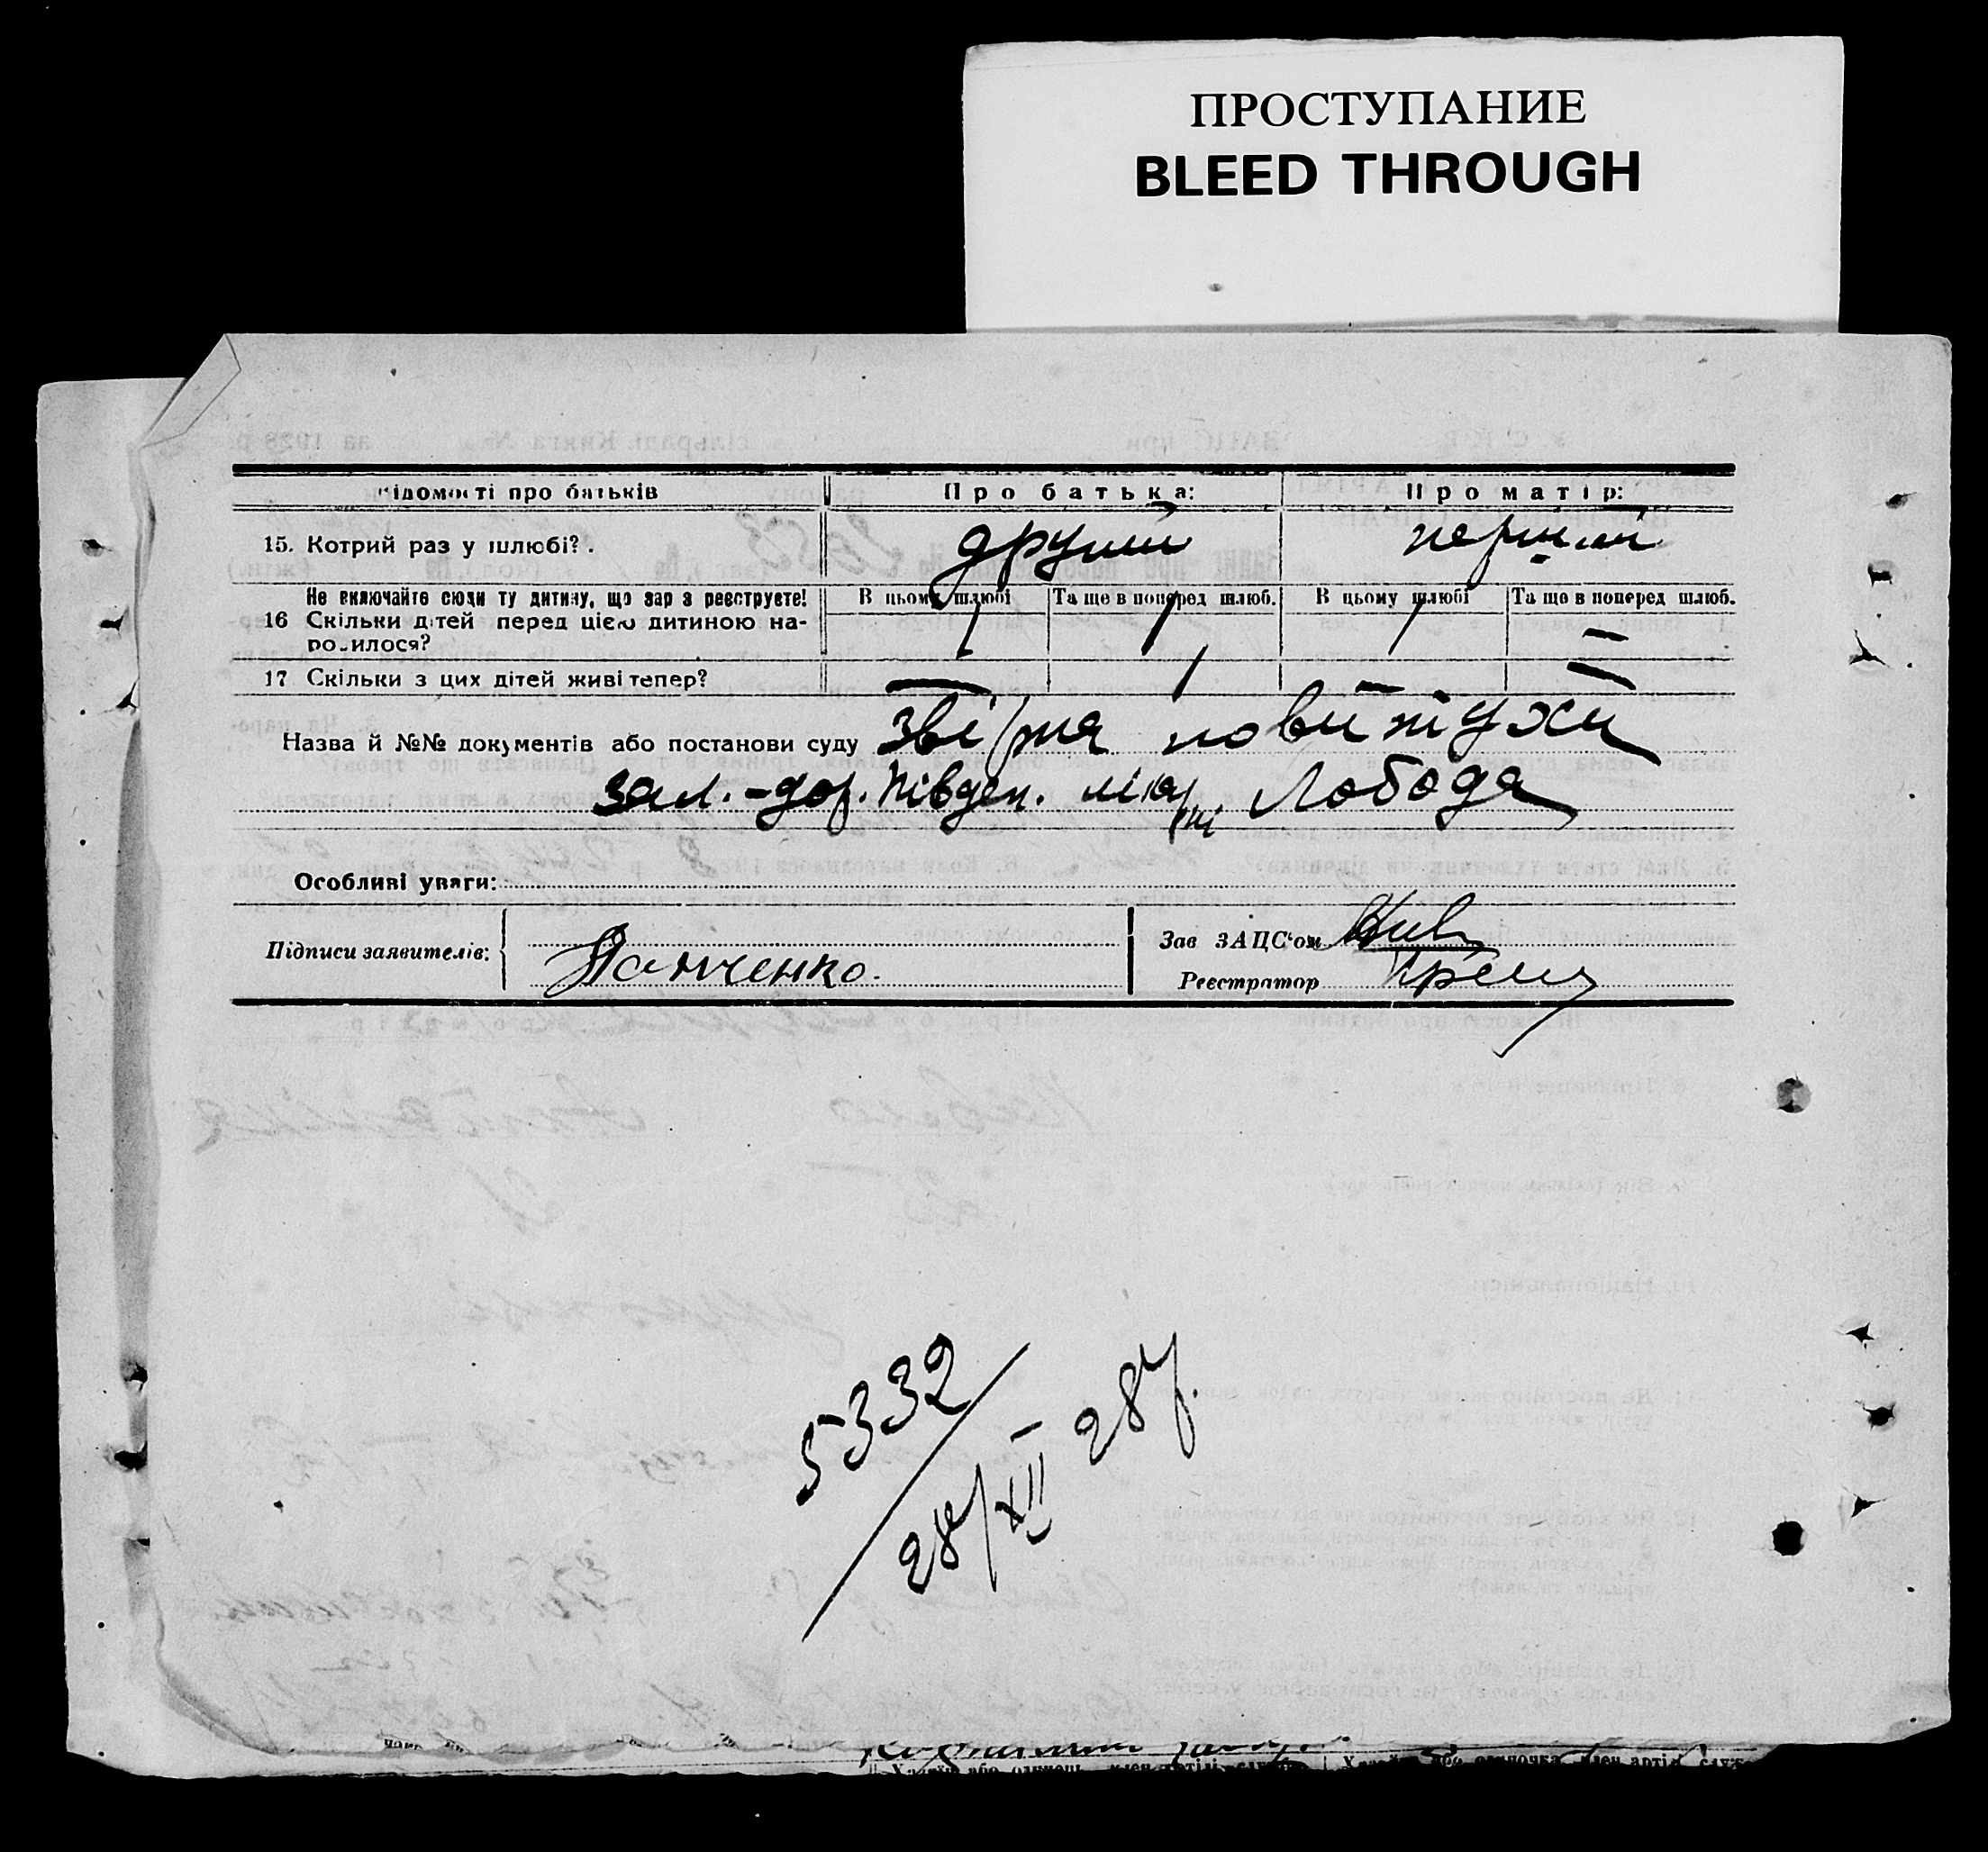 ПРОСТУПАНИЕ
BLEED THROUGH
Відомості про батьків
Про батька:
Про матір:
15. Котрий раз у шлюбі?.
другий
перший
Не включайте сюди ту дитину, що зараз реєструєте!
16 Скільки дітей перед цією дитиною на-
родилося?
В цьому шлюбі
Та ще в поперед шлюб.
В цьому шлюбі
Та ще в поперед шлюб.
1
1
1
—
17 Скільки з цих дітей живі тепер?
—
1
—
—
Назва й №№ документів або постанови суду
повитухи
зал.-дор. Півден. лікарні Лобода
Особливі уваги:
Підписи заявителів:
Панченко.
Зав ЗАЦС'ом
Реєстратор
5332
28/XII 28р.